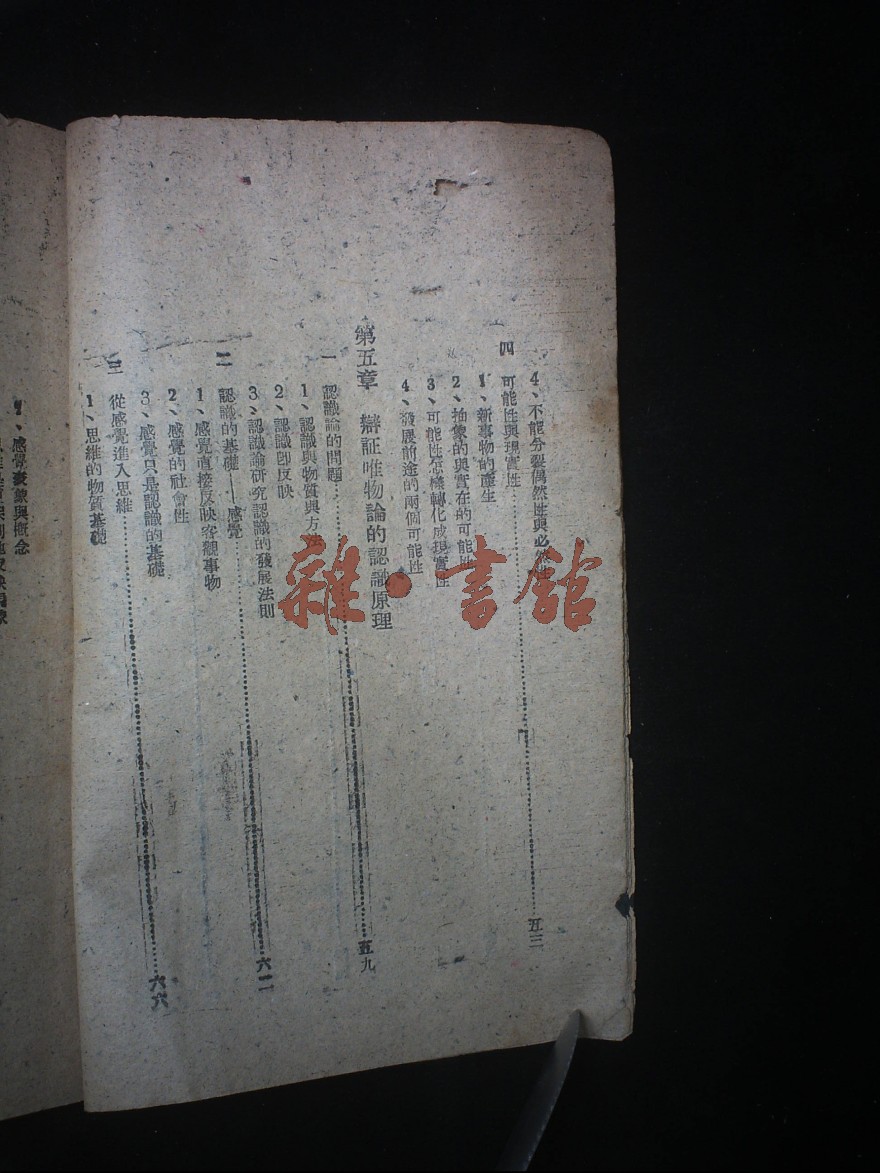 4、不能分裂偶然性與必然性
四 可能性與現實性……五三
1、新事物的產生
2、抽象的與實在的可能性
3、可能性怎樣轉化成現實性
4、發展前途的兩個可能性
第五章 辯証唯物論的認識原理
一 認識論的問題……五九
1、認識與物質與方法
2、認識即反映
3、認識論研究認識的發展法則
二 認識的基礎——感覺……六二
1、感覺直接反映客觀事物
2、感覺的社會性
3、感覺只是認識的基礎
三 從感覺進入思維……六六
1、思維的物質基礎
感覺表象與概念
雜·書舘